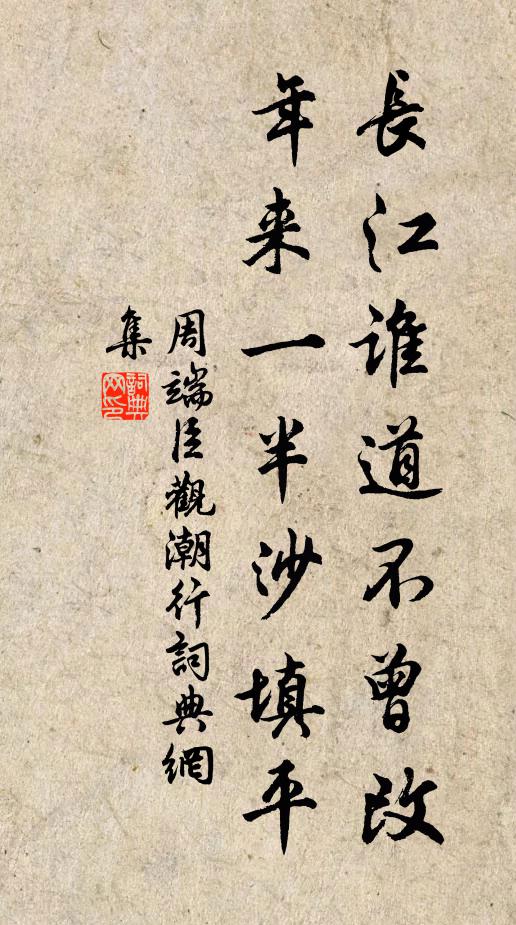 長江誰道不曾改
年来一半沙填平
周端臣觀潮行詞典網
集
詞典
网印